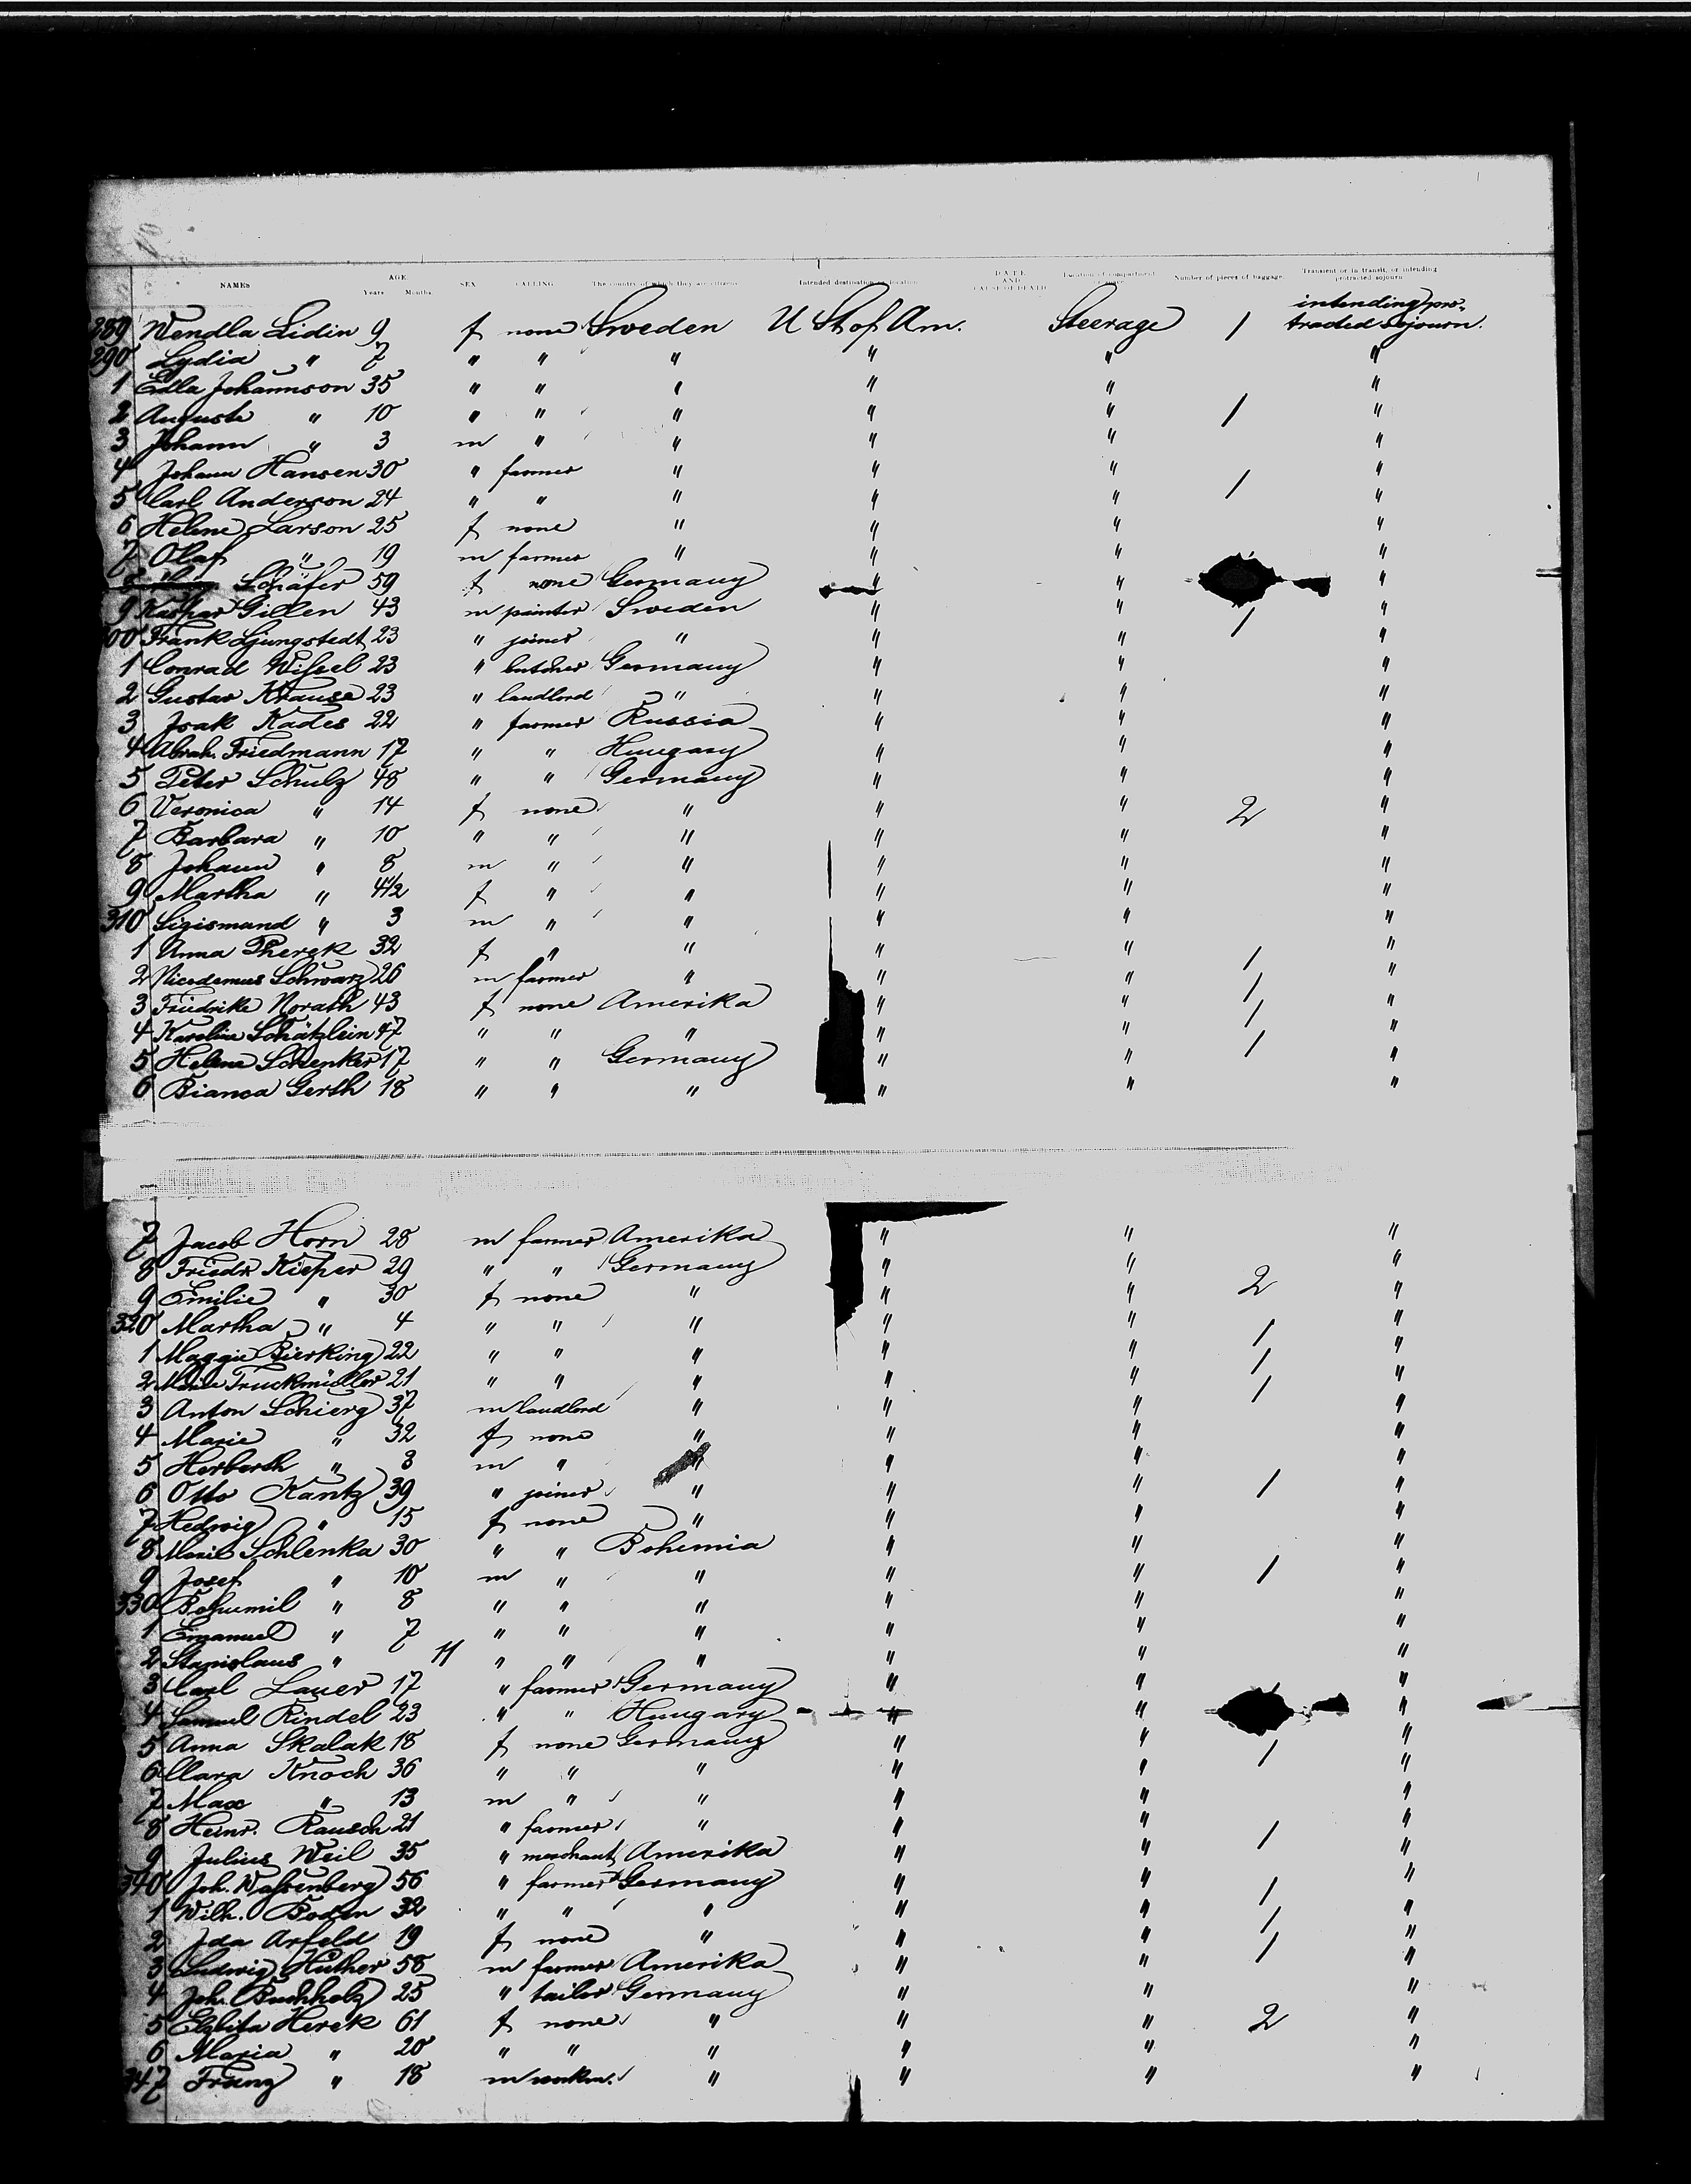 NAMES AGE Years Months SEX CALLING The country of which they are citizens Intended destination or location DATE AND CAUSE OF DEATH Location of compartment Number of pieces of baggage Transient or in transit, or intending protracted sojourn
289 Wendla Lidin 9 f none Sweden U St of Am. Steerage 1 intending protracted sojourn.
290 Lydia " 7 " " " " " "
1 Edla Johannson 35 " " " " " "
2 Auguste " 10 " " " " " 1 "
3 Johann " 3 m " " " " "
4 Johann Hansen 30 " farmer " " " "
5 Carl Anderson 24 " " " " " 1 "
6 Helene Larson 25 f none " " " "
7 Olaf " 19 m farmer " " " "
8 Schäfer 59 f none Germany " " "
9 Kaspar Gillen 43 m painter Sweden " " 1 "
300 Frank Ljungstedt 23 " joiner " " " "
1 Conrad Wissel 23 " butcher Germany " " "
2 Gustav Krause 23 " landlord " " " "
3 Isak Kades 22 " farmer Russia " " "
4 Abrah. Friedmann 17 " " Hungary " " "
5 Peter Schulz 48 " " Germany " " "
6 Veronica " 14 f none " " " 2 "
7 Barbara " 10 " " " " " "
8 Johann " 8 m " " " " "
9 Martha " 4 1/2 f " " " " "
310 Sigismand " 3 m " " " " "
1 Anna Therek 32 f " " " " 1 "
2 Nicodemus Schwarz 26 m farmer " " " 1 "
3 Friedrike Norath 43 f none Amerika " " 1 "
4 Karoline Schätzlein 47 " " " " " 1 "
5 Helene Schenker 17 " " Germany " " "
6 Bianca Gerth 18 " " " " " "
7 Jacob Horn 28 m farmer Amerika " " "
8 Friedr. Kieper 29 " " Germany " " 2 "
9 Emilie " 30 f none " " " "
320 Martha " 4 " " " " " 1 "
1 Maggie Bierking 22 " " " " " 1 "
2 Marie Truckmüller 21 " " " " " 1 "
3 Anton Schierg 37 m landlord " " " "
4 Marie " 32 f none " " " "
5 Herberth " 3 m " " " " "
6 Otto Kantz 39 " joiner " " " 1 "
7 Hedwig " 15 f none " " " "
8 Marie Schlenka 30 " " Bohemia " " "
9 Josef " 10 m " " " " 1 "
330 Bohumil " 8 " " " " " "
1 Emanuel " 7 " " " " " "
2 Stanislaus " 11 " " " " " "
3 Carl Lauer 17 " farmer Germany " " "
4 Samuel Rindel 23 " " Hungary " " "
5 Anna Skalak 18 f none Germany " " 1 "
6 Clara Knoch 36 " " " " " "
7 Max " 13 m " " " " "
8 Heinr. Rausch 21 " farmer " " " 1 "
9 Julius Weil 35 " merchant Amerika " " "
340 Joh. Wassenberg 56 " farmer Germany " " 1 "
1 Wilh. Boden 32 " " " " " 1 "
2 Ida Arfeld 19 f none " " " 1 "
3 Ludwig Huther 58 m farmer Amerika " " "
4 Joh. Buchholz 25 " tailor Germany " " "
5 Elzbita Herek 61 f none " " " 2 "
6 Maria " 20 " " " " " "
347 Franz " 18 m workm. " " " "